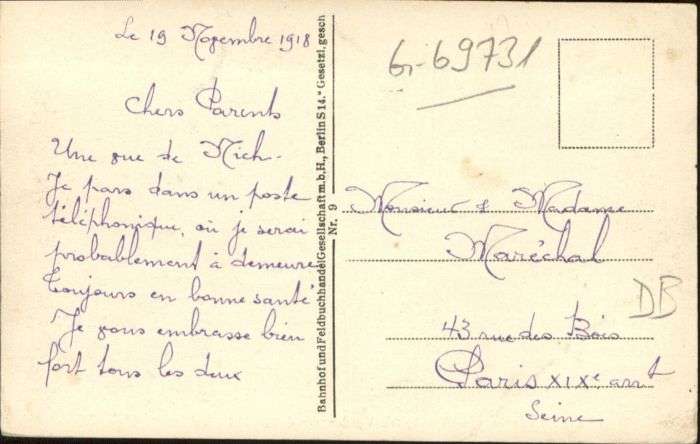 Le 19 Novembre 1918
Chers Parents
Une vue de Nich.
Je pars dans un poste
téléphonique, où je serai
probablement à demeure
Toujours en bonne santé
Je vous embrasse bien
fort tous les deux
Bahnhof und Feldbuchhandel Gesellschaft m.b.H., Berlin S 14." Gesetzl. gesch
Nr. 9
6-69731
Monsieur & Madame
Maréchal
43 rue des Bois
Paris XIXe arrt
Seine
DB